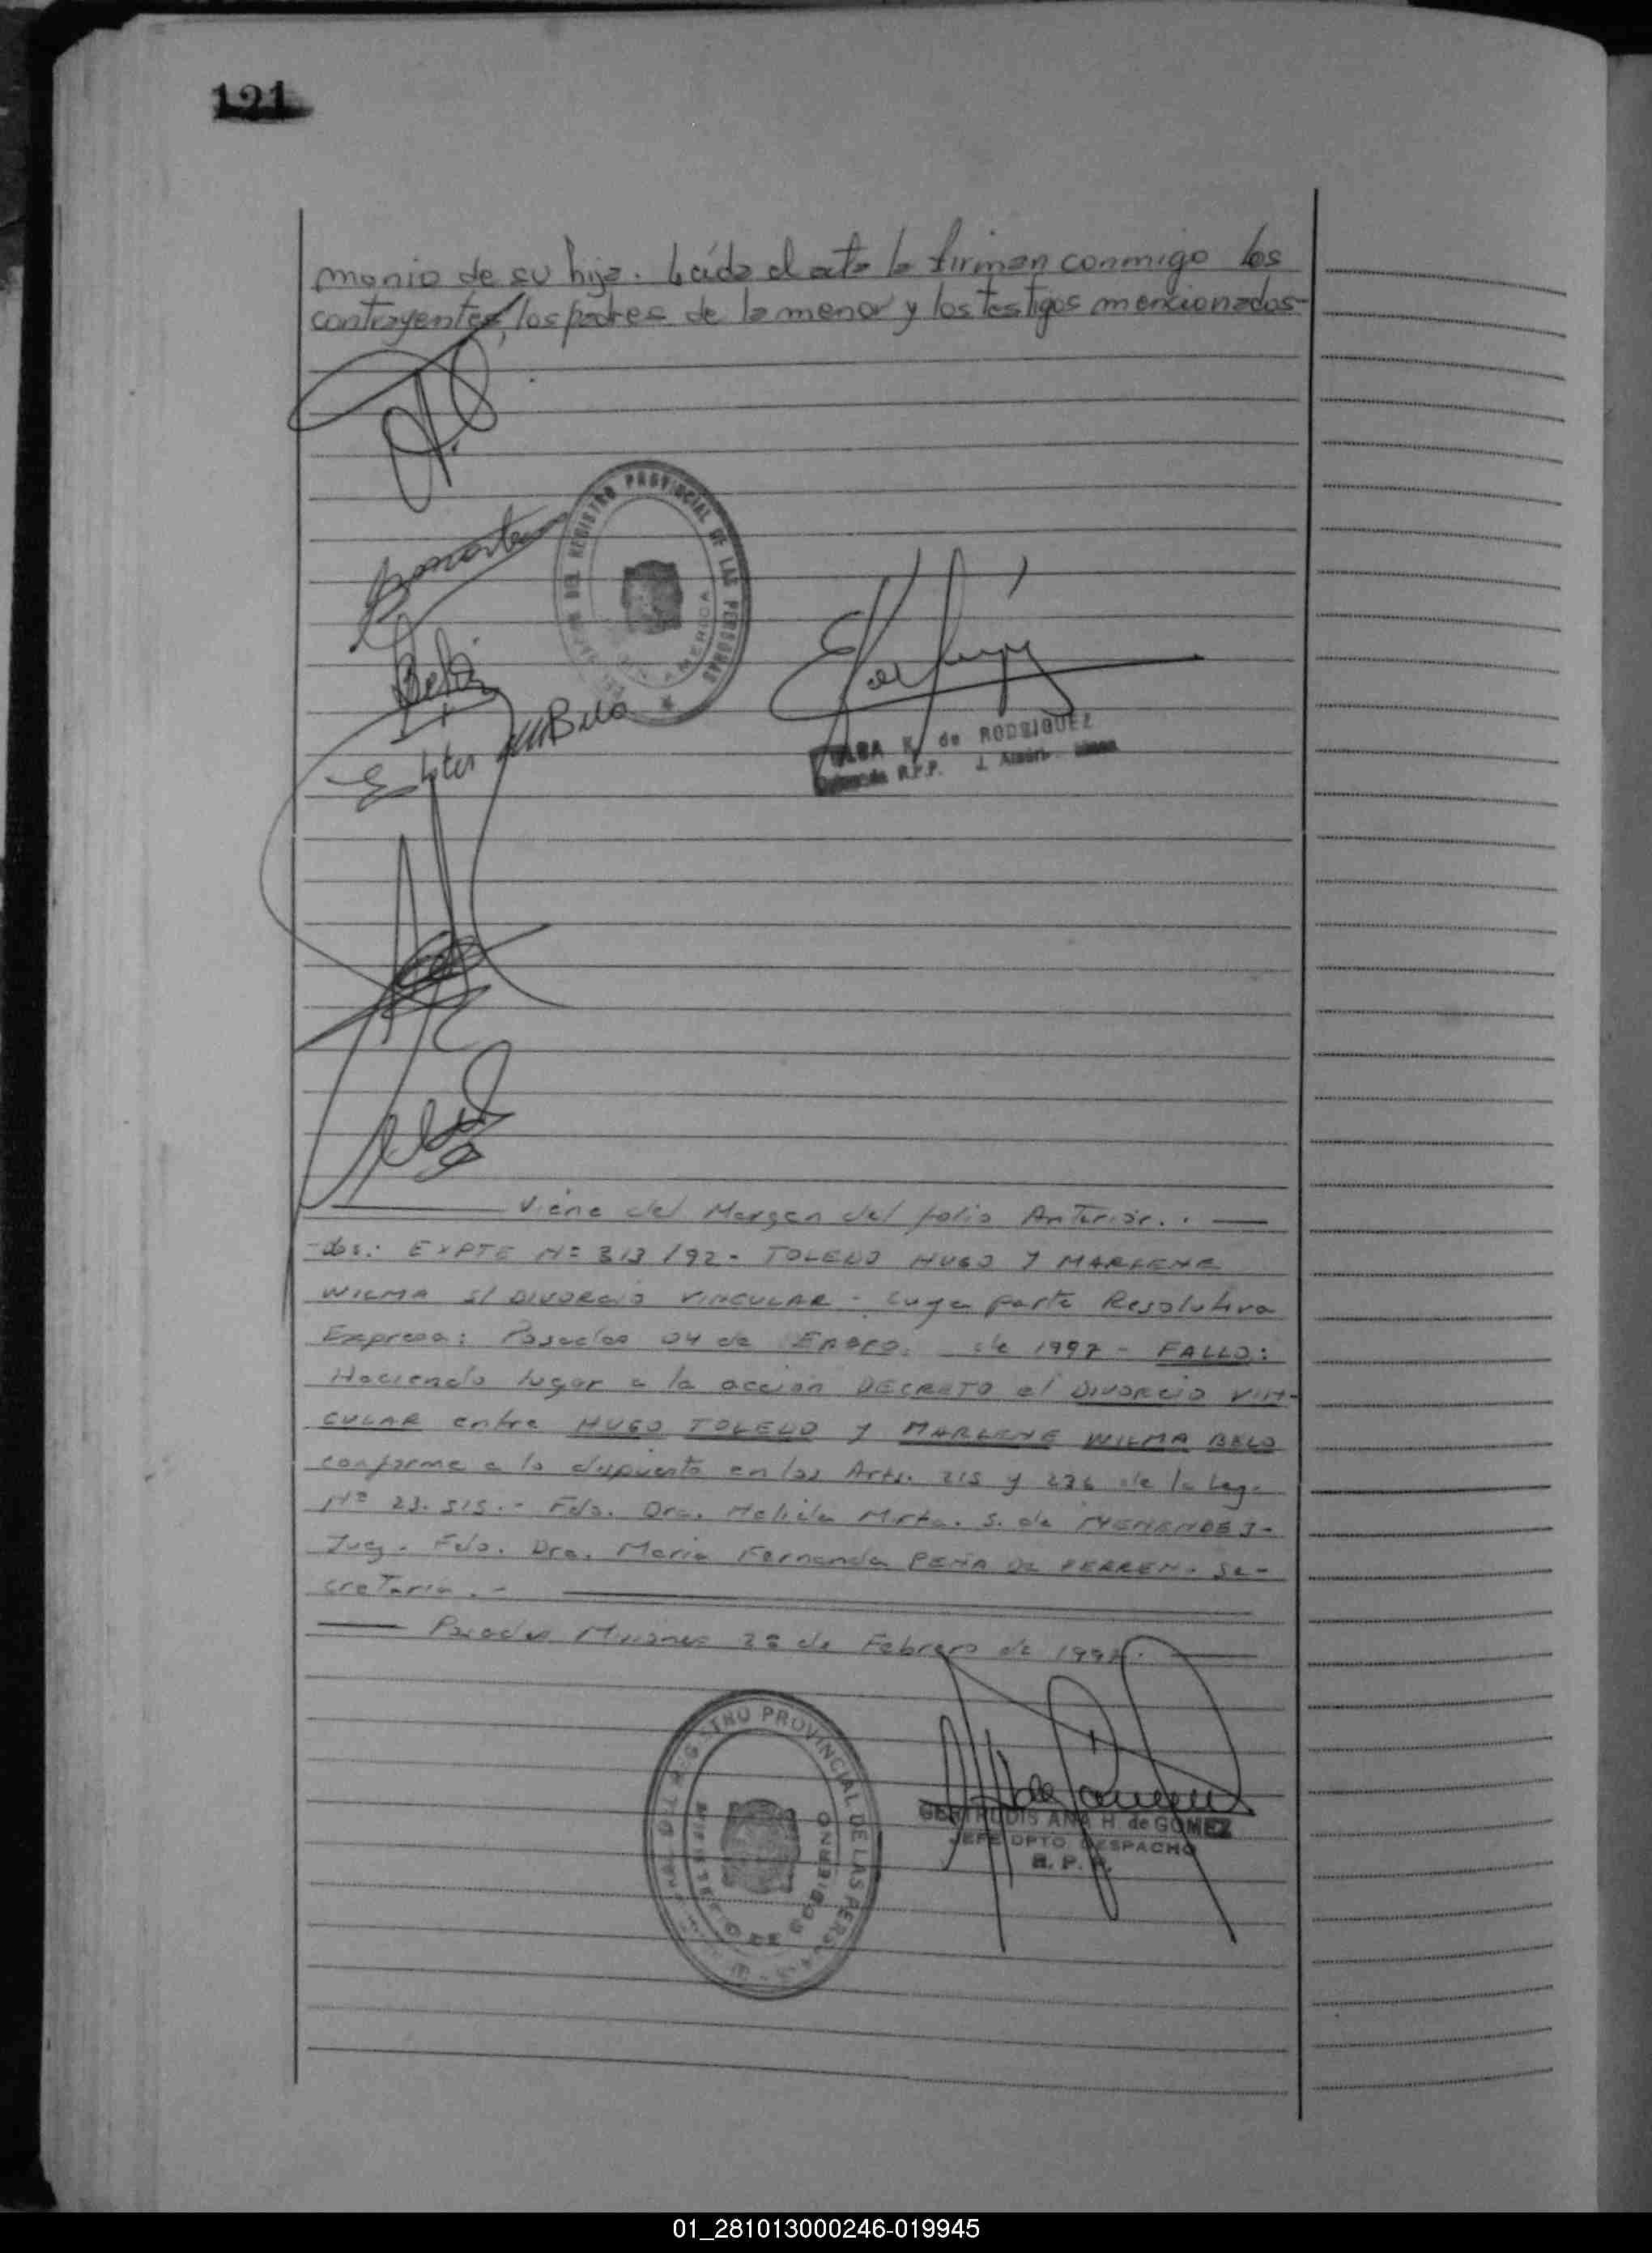 121
monio de su hija. Leída el acta la firman conmigo los
contrayentes, los padres de la menor y los testigos mencionados-
DEL REGISTRO PROVINCIAL DE LAS PERSONAS
AMERICA
Belo
Ester M Belo
ELBA K. de RODRIGUEZ
R.P.P. J. Améri
Viene del Margen del folio Anterior. . —
-dos: EXPTE Nº 313/92- TOLEDO HUGO Y MARLENE
WILMA S/ DIVORCIO VINCULAR - cuya parte Resolutiva
Expresa: Posadas 04 de Enero. de 1997 - FALLO:
Haciendo lugar a la acción DECRETO el DIVORCIO VIN-
CULAR entre HUGO TOLEDO Y MARLENE WILMA BELO
conforme a lo dispuesto en los Arts. 215 y 236 de la Ley.
Nº 23.515.- Fdo. Dra. Mirta. S. de MENENDEZ-
Juez. Fdo. Dra. Maria Fernanda PEÑA DE FERREN. Se-
cretaria. -
Posadas Misiones 28 de Febrero de 1997. —
REGISTRO PROVINCIAL DE LAS PERSONAS
GOBIERNO
GERTRUDIS ANA H. de GOMEZ
JEFE DPTO DESPACHO
R. P. P.
01_281013000246-019945